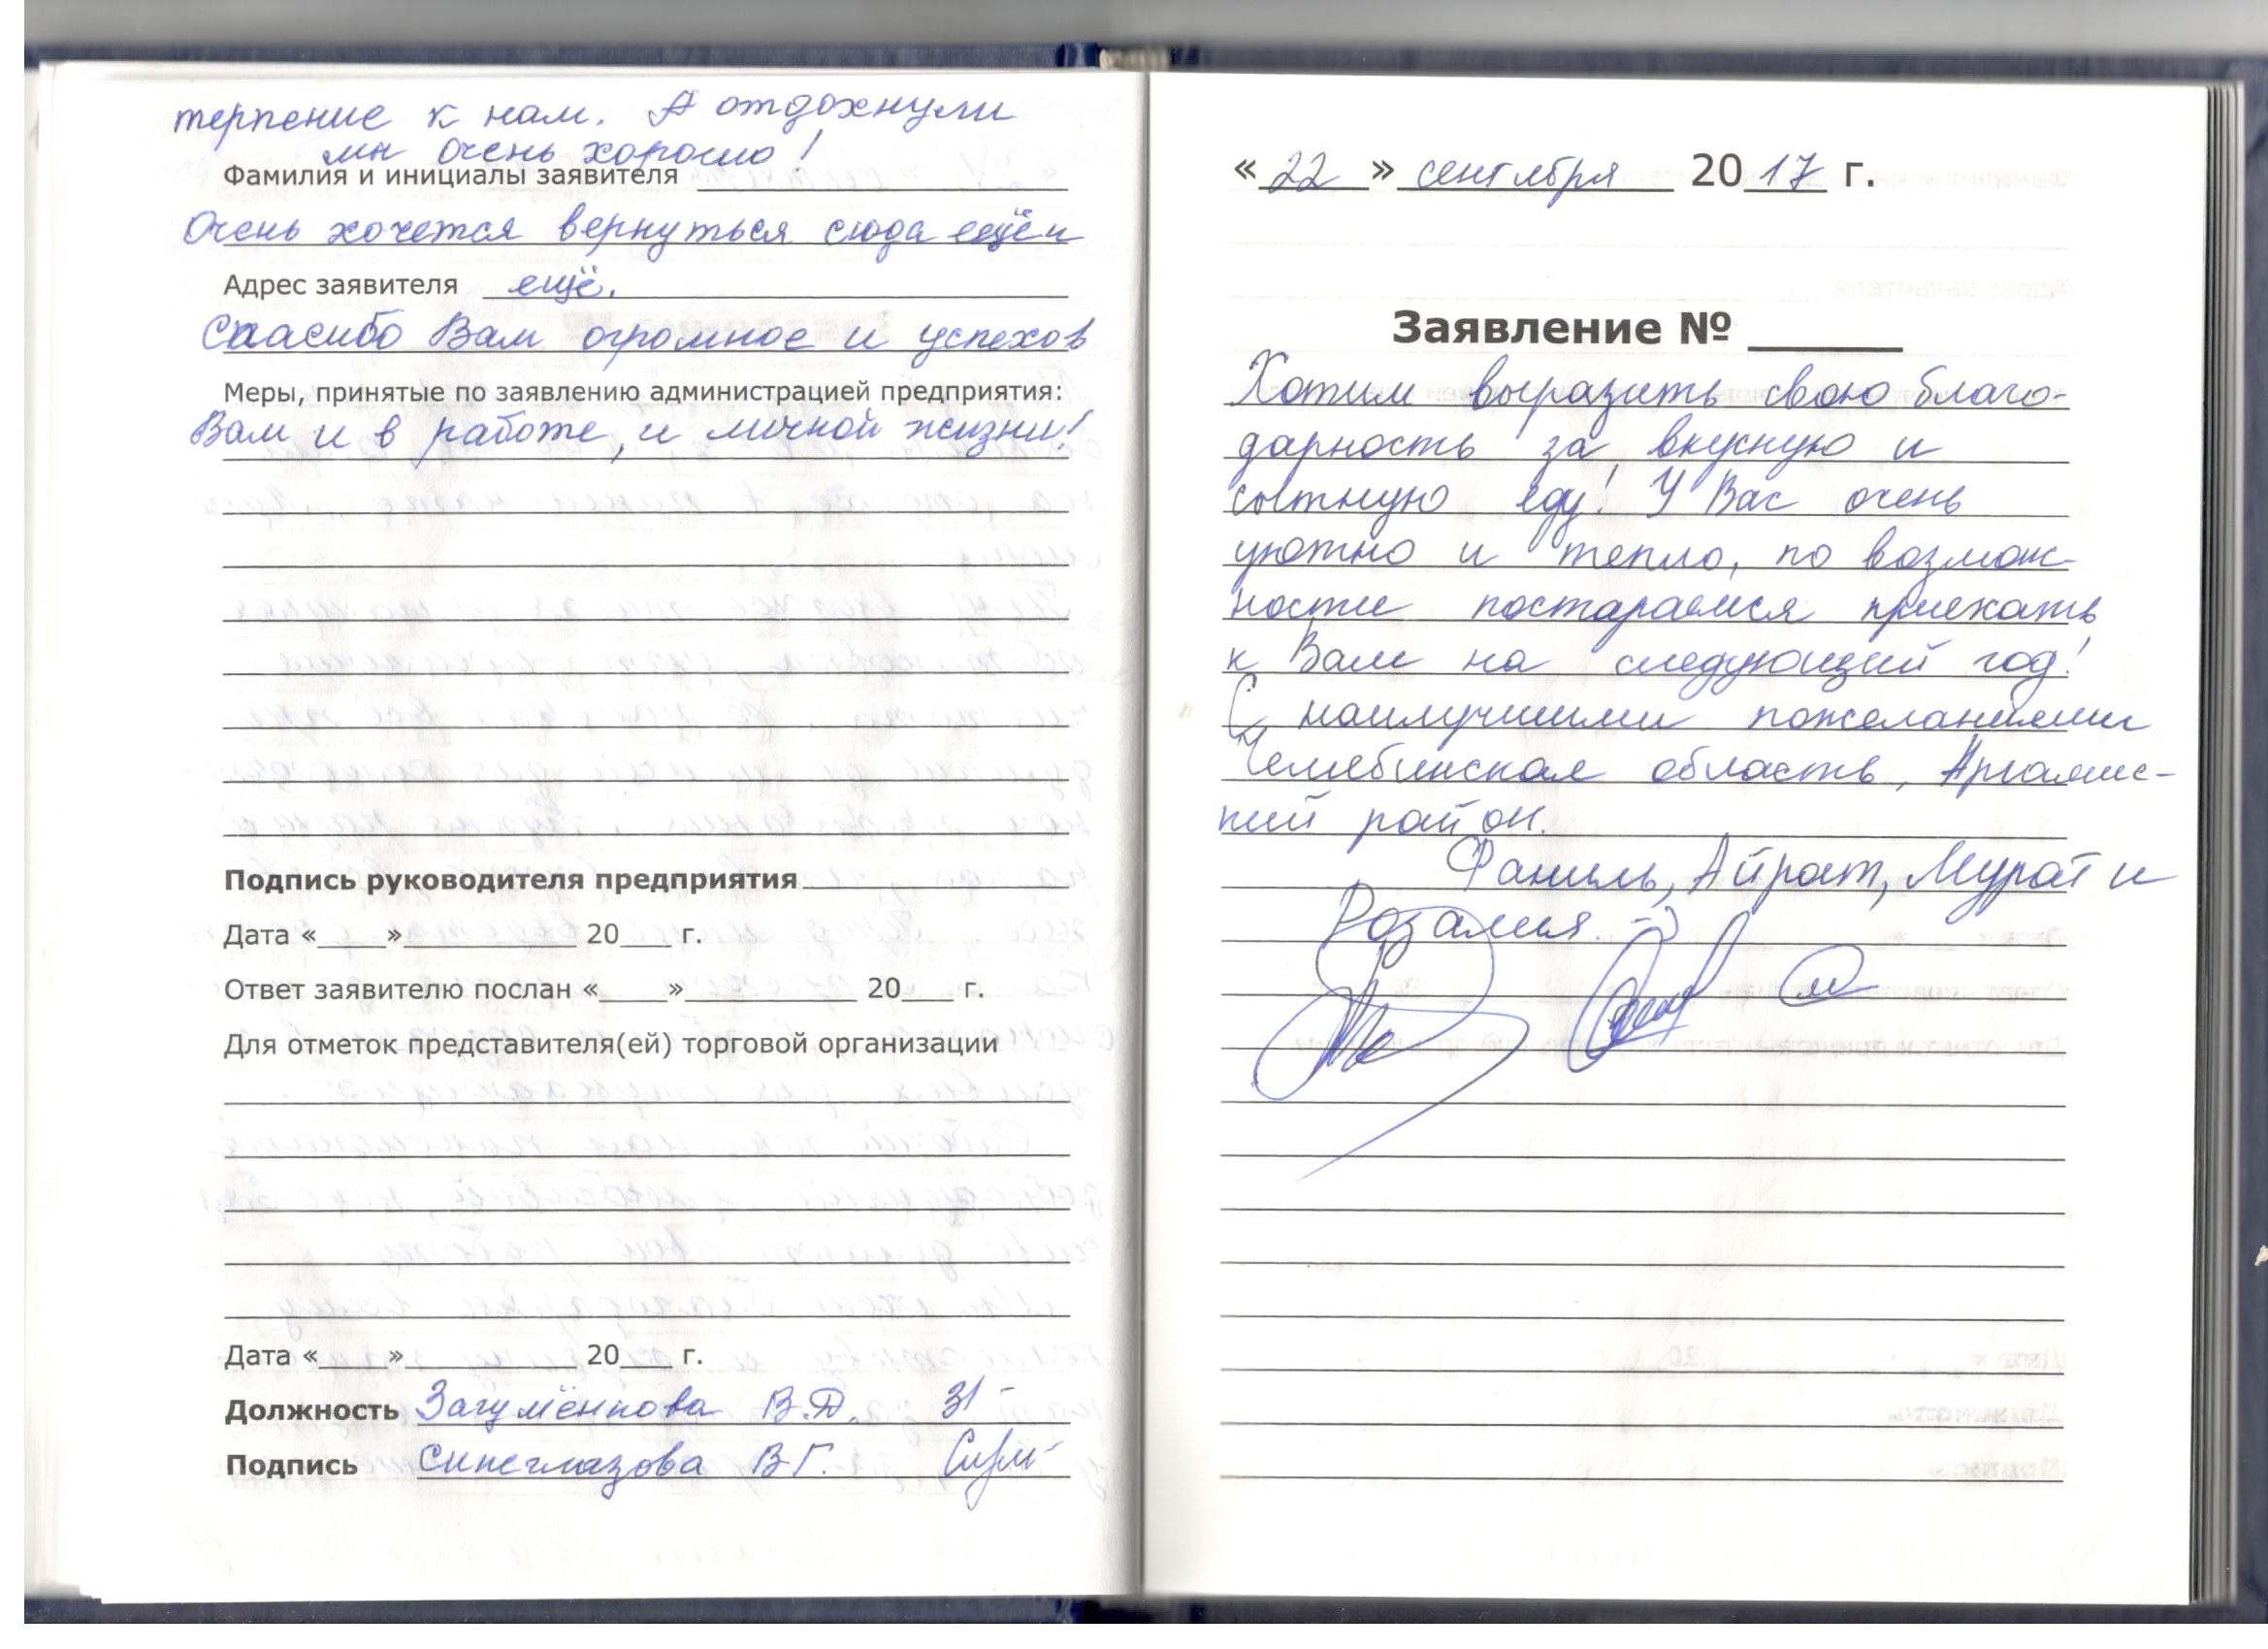 терпение к нам. А отдохнули
мы очень хорошо!
Фамилия и инициалы заявителя
Очень хочется вернуться сюда ещё и
Адрес заявителя ещё.
Спасибо Вам огромное и успехов
Меры, принятые по заявлению администрацией предприятия:
Вам и в работе, и личной жизни!
Подпись руководителя предприятия
Дата «____»__________ 20___ г.
Ответ заявителю послан «____»__________ 20___ г.
Для отметок представителя(ей) торговой организации
Дата «____» __________ 20___ г.
Должность Загумённова В.Д.
Подпись Синеглазова В.Г.
«22» сентября 2017 г.
Заявление № ______
Хотим выразить свою благо-
дарность за вкусную и
сытную еду! У Вас очень
уютно и тепло, по возмож-
ности постараемся приехать
к Вам на следующий год!
С наилучшими пожеланиями
Челябинская область, Аргаяшс-
кий район.
Фаниль, Айрат, Мурат и
Розалия. :-)